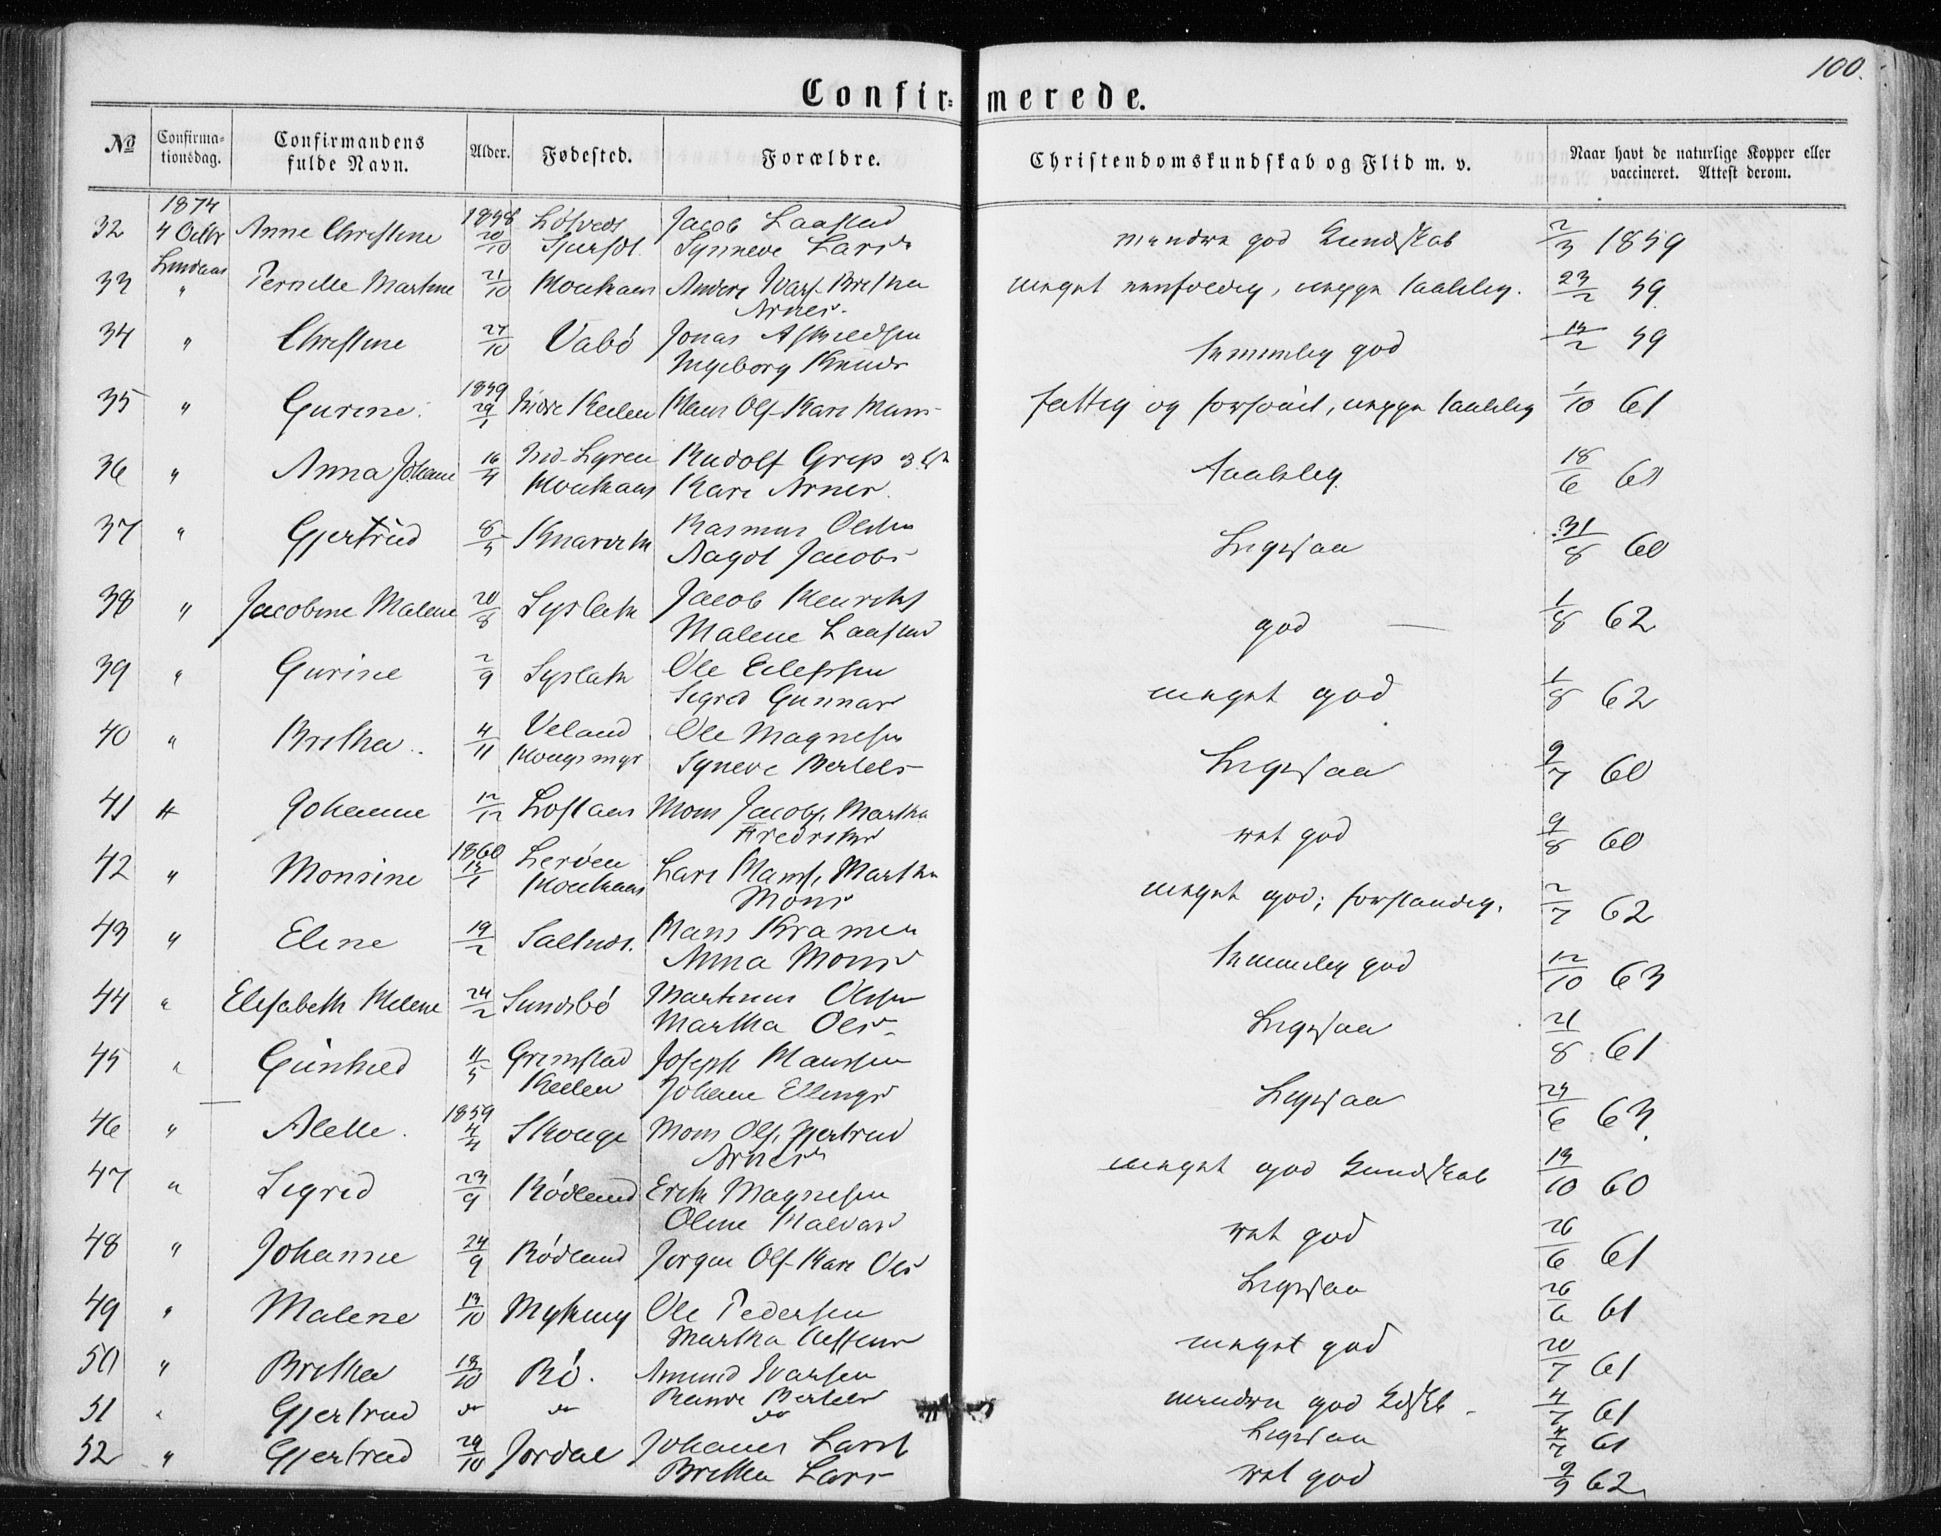 100.
Confir= merede.
No Confirma=tionsdag. Confirmandens fulde Navn. Alder. Fødested. Forældre. Christendomskundskab og Flid m. v. Naar havt de naturlige Kopper eller vaccineret. Attest derom.
32 1874 4 Octbr Anne Christine 1858 20/10 Jacob Laastad Synneve Lars mindre god Kundskab 2/3 1859
33 Lindaas " Pernille Martine 21/10 Anders Ivars. Brithe Arnes. meget eenfoldig, neppe taalelig. 23/2 59
34 " Christine 27/10 Vabö Jonas Ingeborg Knuds temmelig god 59
35 " Gurine. 1859 Kari Mons fattig og forsömt, neppe taalelig 1/10 61
36 " Anna Johanne Rudolf Grip Kari Arnes. taalelig. 18/6 61
37 " Gjertrud Knarvik Rasmus Olsen Aagot Jacobs Ligesaa 31/8 60
38 " Jacobine Malene 20/8 Syslak Jacob Henriks Malene Laastad god — 1/8 62
39 " Gurine 2/9 Syslak Ole Eilefsen Sigrid Gunnars meget god 1/8 62
40 " Brithe 4/11 Veland Ole Magnesen Syneve Bertels Ligesaa 9/7 60
41 " Johanne 12/12 Loftaas Mons Jacobs. Martha Fredriks ret god 9/8 60
42 " Monsine 1860 Leröen Lars Hans, Martha Mons meget god; forstandig. 2/7 62
43 " Eline 19/2 Hans Kramer Anna Mons temmelig god 12/10 63
44 " Elisabeth Helene 24/2 Sundsbö Martinus Olsen Martha Ols Ligesaa 21/8 61
45 " Gunhild Grimstad Joseph Hansen Johane Ellings Ligesaa 6 63.
46 " Alette. 1859 4/4 Skouge Mons Ols. Gjertrud Arnes meget god Kundskab 13/10 60
47 " Sigrid 23/9 Rödland Erik Magnesen Oline Halvars ret god 26/6 61
48 " Johanne 24/9 Rödland Jörgen Ols. Kari Ols Ligesaa 26/6 61
49 " Malene 13/10 Myking Ole Pedersen Martha meget god 20/7 61
50 " Brithe 18/10 Rö. Amund Ivarsen Rande Bertels mindre god 4/7 61
51 " Gjertrud do do do Ligesaa 4/7 61
52 " Gjertrud 29/10 Jordal Johanes Lars Brithe Lars ret god 62